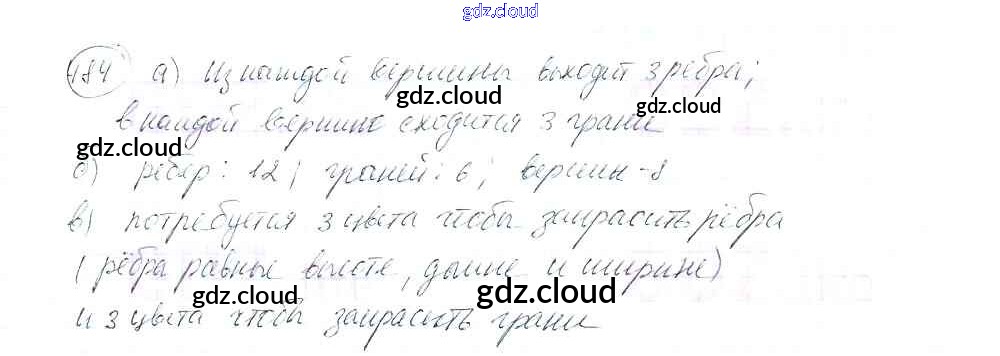 gdz.cloud
484 а) Из каждой вершины выходит 3 ребра;
gdz.cloud gdz.cloud
в каждой вершине сходится 3 грани
gdz.cloud gdz.cloud
б) рёбер: 12; граней: 6; вершин - 8
в) потребуется 3 цвета чтобы закрасить рёбра
(рёбра равные высоте, длине и ширине)
gdz.cloud gdz.cloud
и 3 цвета чтобы закрасить грани